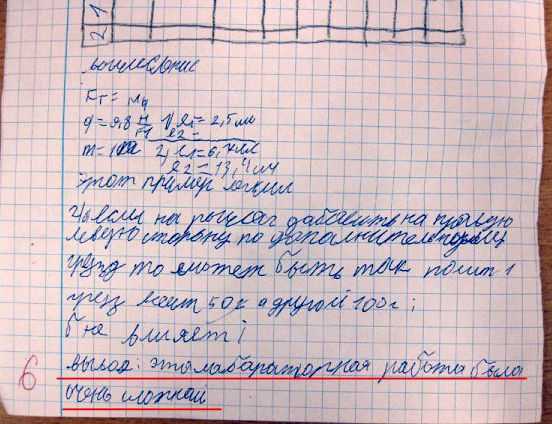 1
2
вычисление
Fт = mg
g = 9,8 Н 1) l1 = 2,5 см
l2 =
m = 2) l1 = 6,
l2 = 13,4 см
этот пример легкий
4) если на рычаг дабавить на правую
левую сторону по дополнительному
грузу то может быть так
груз весит 50г а другой 100г;
5 не влияет;
6
вывод: эта лабараторная работа была
очень сложной